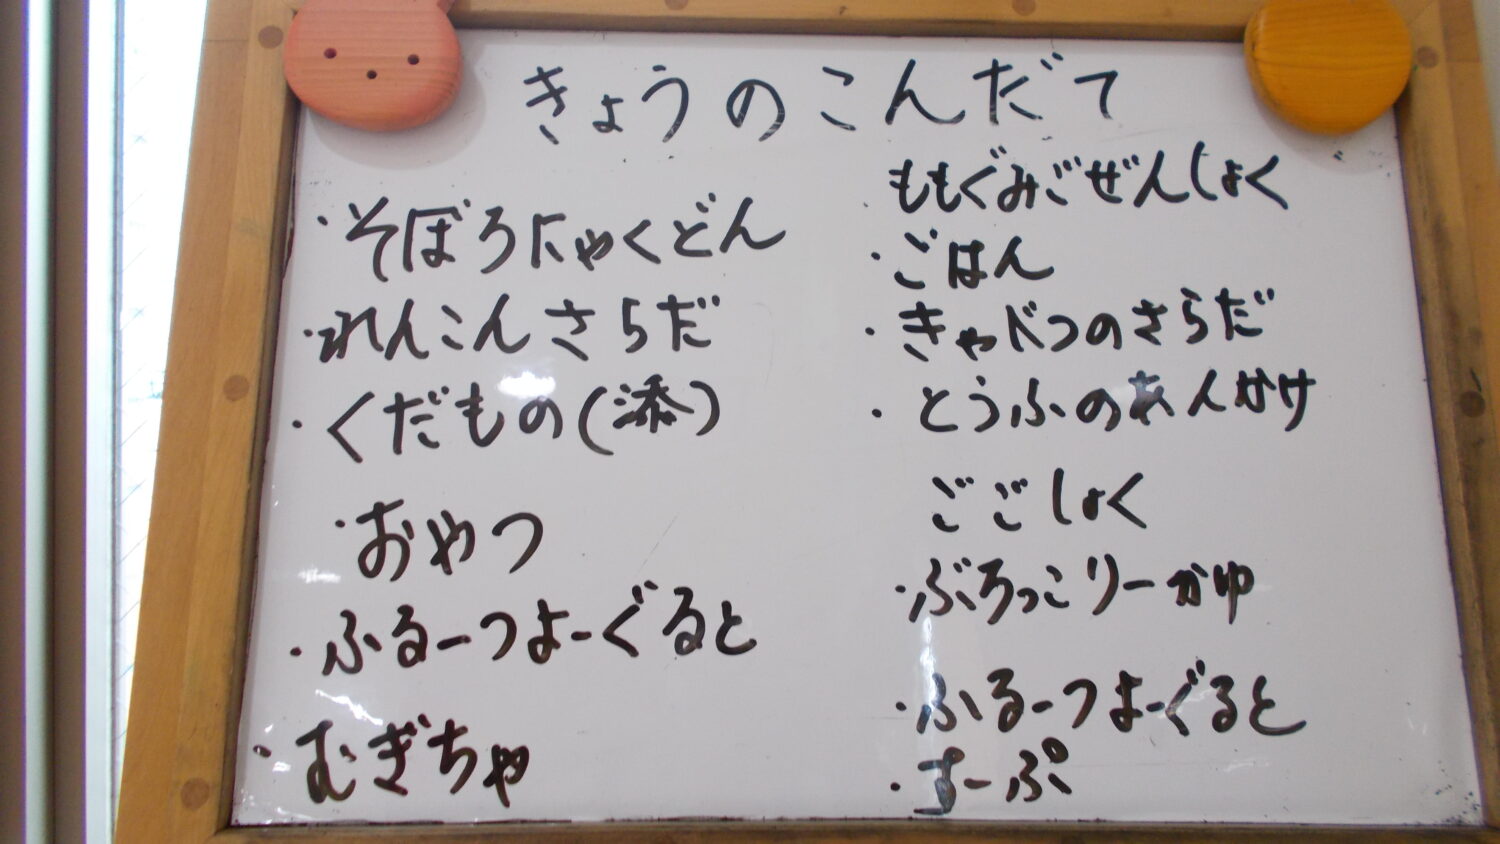 きょうのこんだて
・そぼろにゃくどん
・れんこんさらだ
・くだもの(添)
・おやつ
・ふるーつよーぐると
・むぎちゃ
ももぐみごぜんしょく
・ごはん
・きゃべつのさらだ
・とうふのあんかけ
ごごしょく
・ぶろっこりーかゆ
・ふるーつよーぐると
・すーぷ